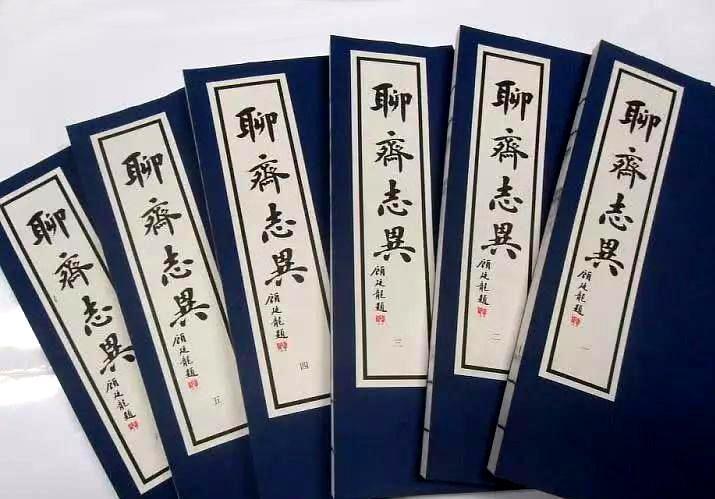 聊齋志異
顧廷龍題
一
聊齋志異
顧廷龍題
二
聊齋志異
顧廷龍題
三
聊齋志異
顧廷龍題
四
聊齋志異
顧廷龍題
五
聊齋志異
顧廷龍題